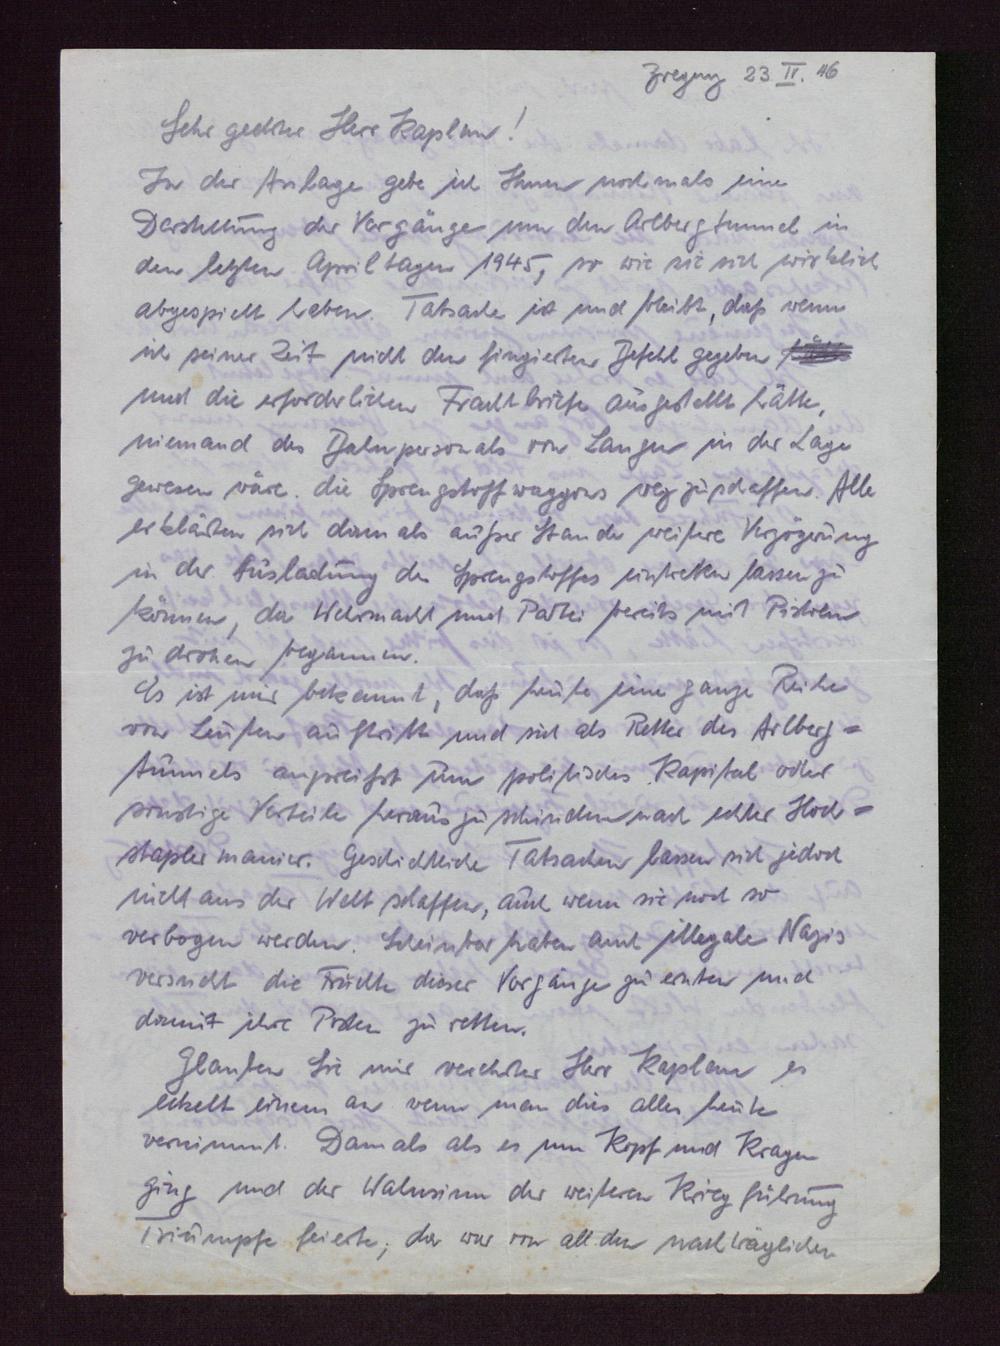 Bregenz 23 IV. 46
Sehr geehrter Herr Kaplan!
In der Anlage gebe ich Ihnen nochmals eine
Darstellung der Vorgänge um den Arlbergtunnel in
den letzten Apriltagen 1945, so wie sie sich wirklich
abgespielt haben. Tatsache ist und bleibt, daß wenn
ich seiner Zeit nicht den fingierten Befehl gegeben
und die erforderlichen Frachtbriefe ausgestellt hätte,
niemand des Bahnpersonals von Langen in der Lage
gewesen wäre. die Sprengstoffwaggons wegzuschaffen. Alle
erklärten sich damals außer Stande weitere Verzögerung
in der Ausladung des Sprengstoffes eintreten lassen zu
können, da Wehrmacht und Partei bereits mit Pistolen
zu drohen begannen.
Es ist mir bekannt, daß heute eine ganze Reihe
von Leuten auftritt und sich als Retter des Arlberg=
tunnels anpreißt um politisches Kapital oder
sonstige Vorteile herauszuschinden nach echter Hoch=
staplermanier. Geschichtliche Tatsachen lassen sich jedoch
nicht aus der Welt schaffen, auch wenn sie noch so
verbogen werden. Scheinbar haben auch illegale Nazis
versucht die Früchte dieser Vorgänge zu ernten und
damit ihre Posten zu retten.
Glauben Sie mir verehrter Herr Kaplan es
eckelt einem an wenn man dies alles heute
vernimmt. Damals als es um Kopf und Kragen
ging und der Wahnsinn der weiteren Kriegführung
Triumpfe feierte, da war von all den nachträglichen